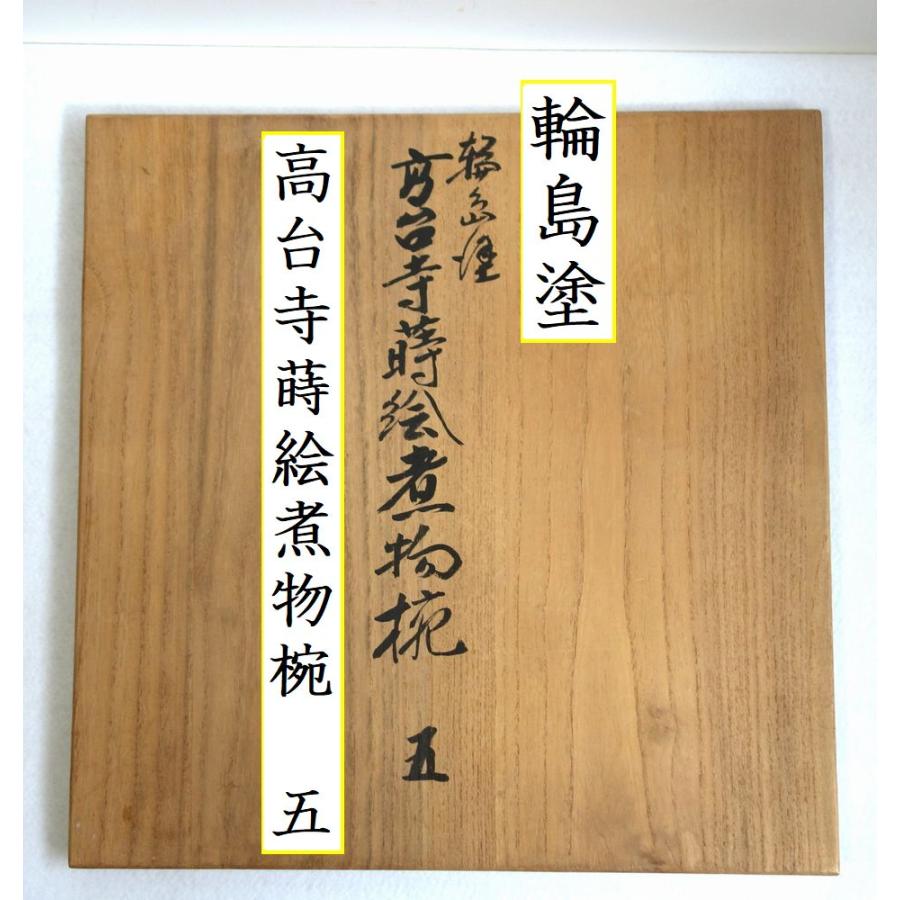 輪島塗
輪島塗
高台寺蒔絵煮物椀 五
高台寺蒔絵煮物椀 五